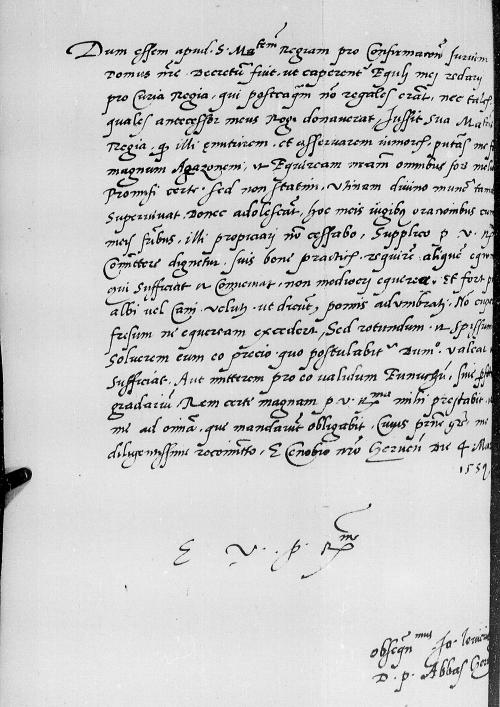 Dum essem apud. S. Ma^tem Regiam pro Confirmacōe Iurium
Domus nr̄e. Decretū fuit, ut caperent' Equi mei redarij
pro Curia Regia, qui posteaq̄m nō regales erāt, nec tales
quales antecessor meus Regi donaverat, Jussit Sua Ma^tas
Regia, me
magnum Agazonem, ut Equiream meam omnibus
Promisi certe. sed non statim. Utinam divino mune tam
Supervivat donec adolescāt, hoc meis iugibus oracionibus cum
meis fr̄ibus, illi propiciari nō cessabo, Supplico p. v. R^m
Comittere dignetur, suis bene practicis, requirere aliquē equum
qui sufficiat et conveniat, non mediocri equireae, Et
albi vel Cani, veluti, ut dicunt, pomis adumbrati. No
fresum ne equeream excederet, Sed rotundum, et spissum
Solverem eum eo precio, quo postulabit' Dum. valeat
sufficiat. Aut mitterem pro eo validum Eunuchū, sive
gradariū Rem certe magnam p. v. R^ma mihi prestabit,
me ad omīa, que mandarūt obligabit. Cuius me
diligentissime recomitto, E Cenobio nr̄o Die 4 Mar
1559
E. V. p. R^me
obseqn^mus Jo.
D. p. Abbas